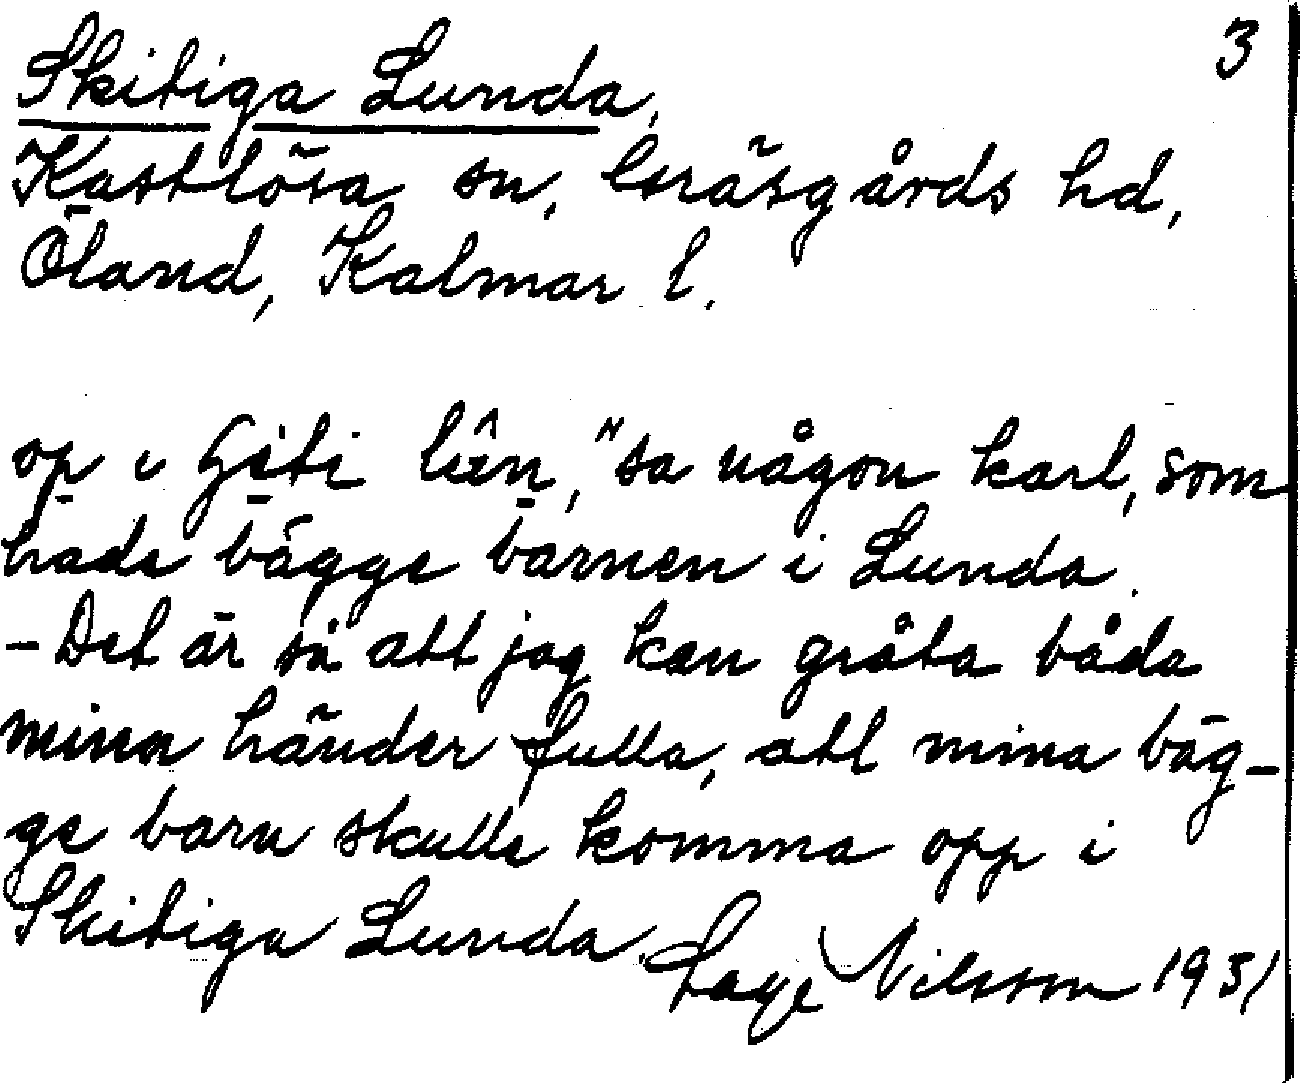 3
Skitiga Lunda,
Kastlösa sn, Gräsgårds hd,
Öland, Kalmar l.
op i Seti Lûn," sa någon karl, som
hade bägge barnen i Lunda.
- Det är så att jag kan gråta båda
mina händer fulla, att mina bäg-
ge barn skulle komma opp i
Skitiga Lunda. Lage Nilsson 1931